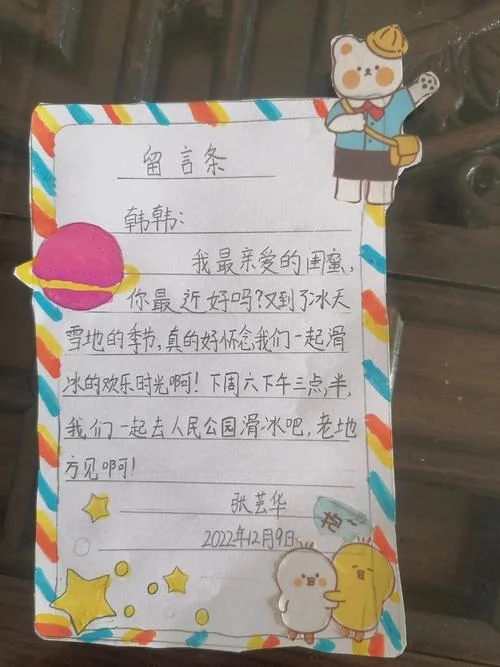 留言条
韩韩：
我最亲爱的闺蜜，
你最近好吗？又到了冰天
雪地的季节，真的好怀念我们一起滑
冰的欢乐时光啊！下周六下午三点半，
我们一起去人民公园滑冰吧，老地
方见啊！
张芸华
2022年12月9日
抱~